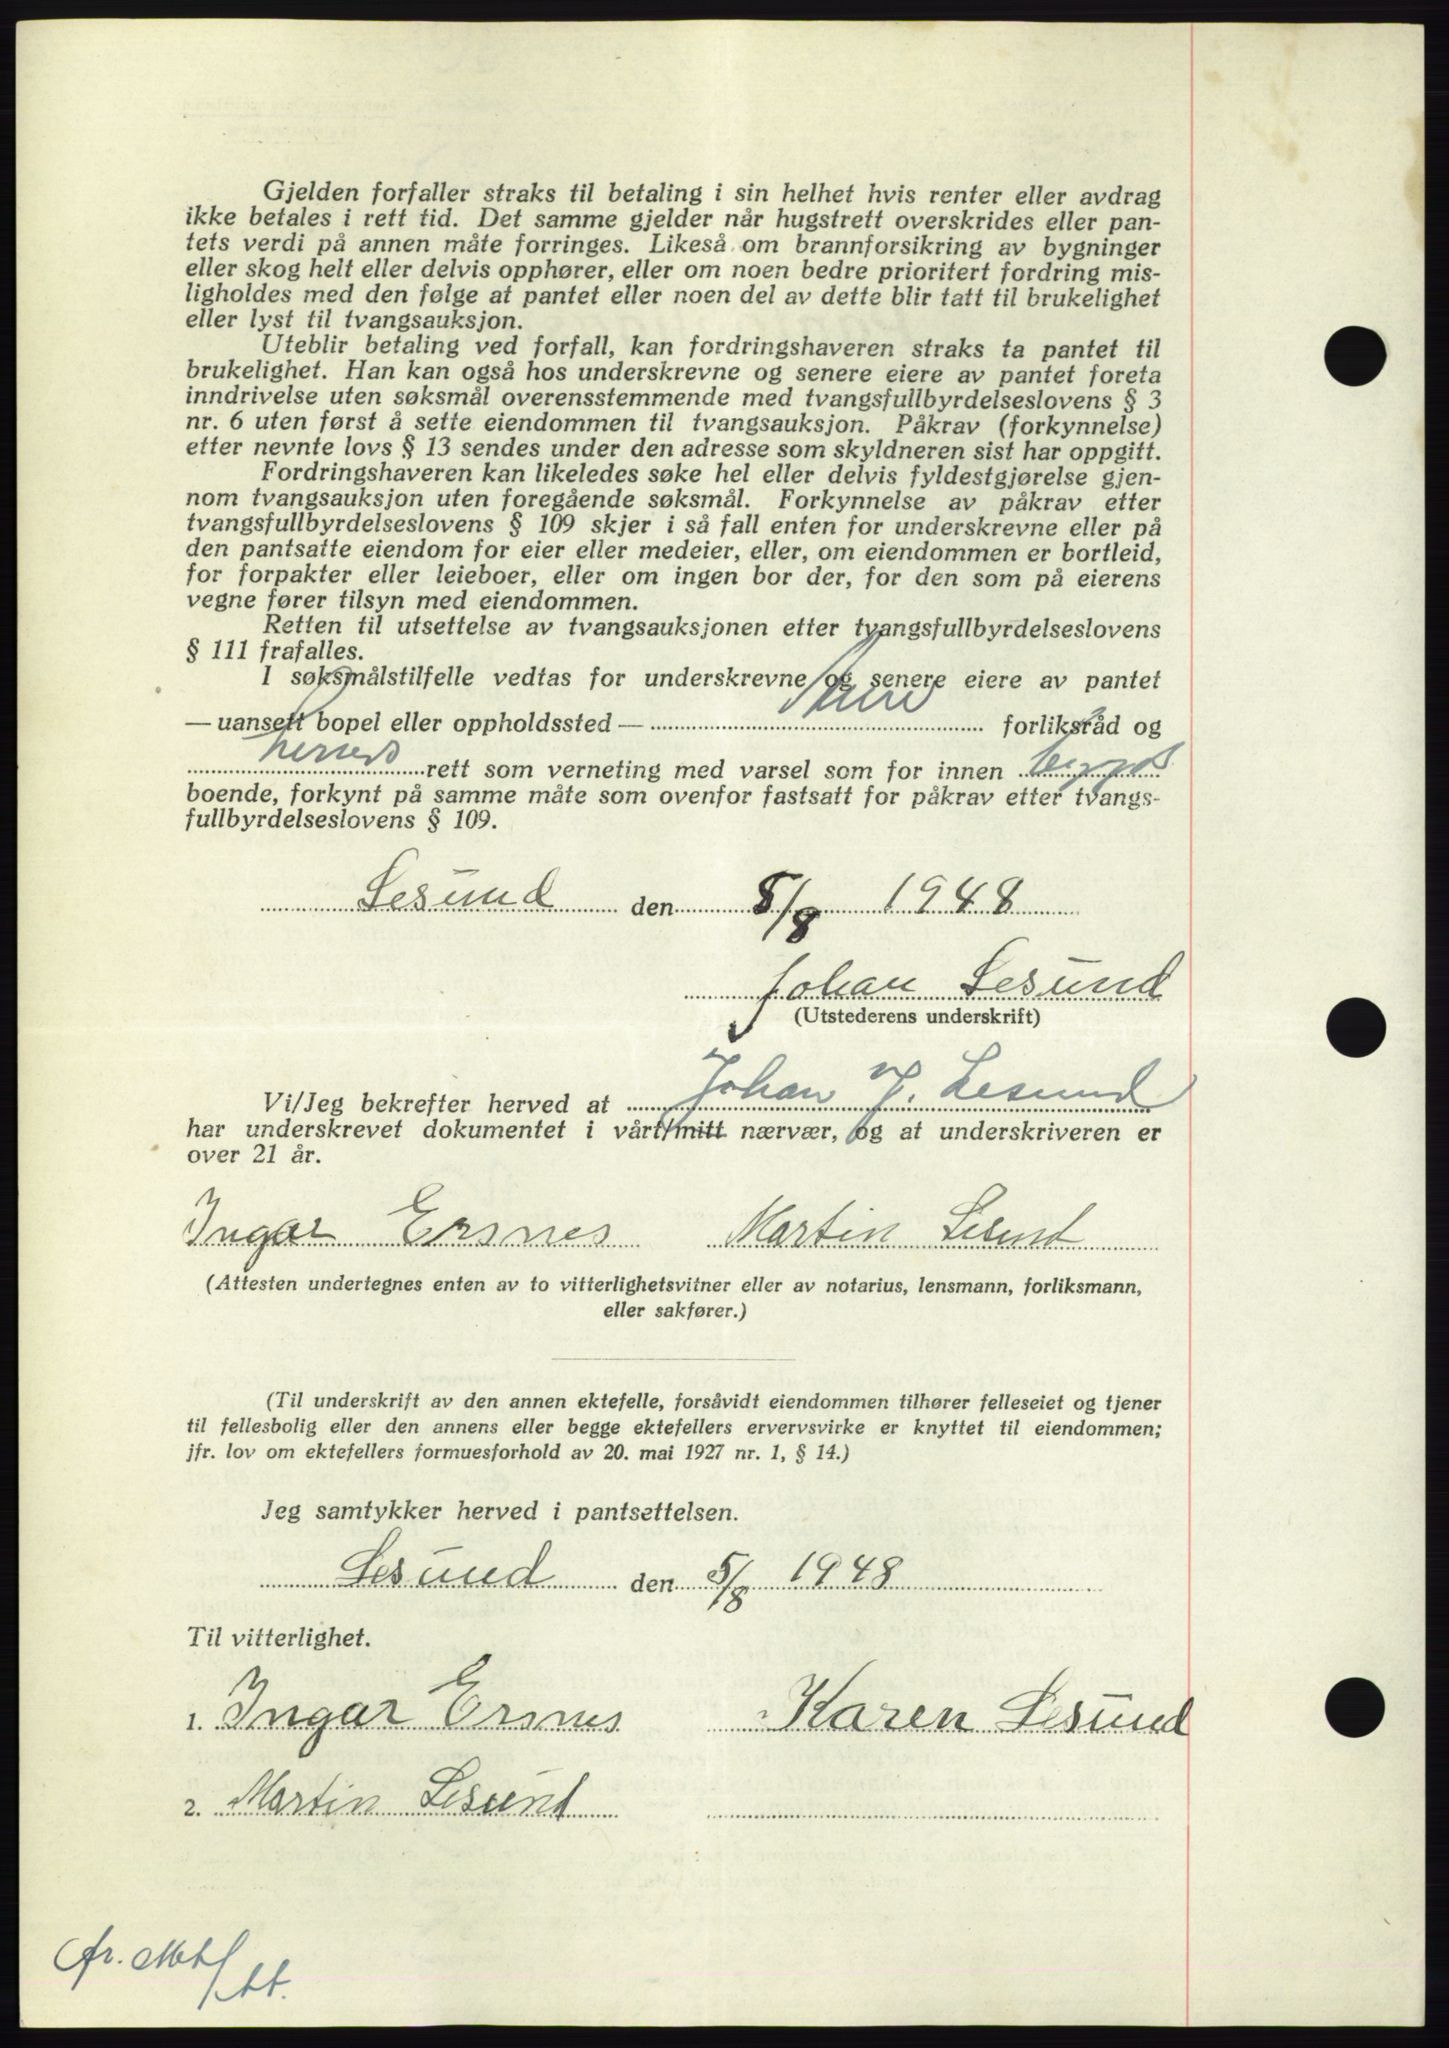 Gjelden forfaller straks til betaling i sin helhet hvis renter eller avdrag
ikke betales i rett tid. Det samme gjelder når hugstrett overskrides eller pan-
tets verdi på annen måte forringes. Likeså om brannforsikring av bygninger
eller skog helt eller delvis opphører, eller om noen bedre prioritert fordring mis-
ligholdes med den følge at pantet eller noen del av dette blir tatt til brukelighet
eller lyst til tvangsauksjon.
Uteblir betaling ved forfall, kan fordringshaveren straks ta pantet til
brukelighet. Han kan også hos underskrevne og senere eiere av pantet foreta
inndrivelse uten søksmål overensstemmende med tvangsfullbyrdelseslovens § 3
nr. 6 uten først å sette eiendommen til tvangsauksjon. Påkrav (forkynnelse)
etter nevnte lovs § 13 sendes under den adresse som skyldneren sist har oppgitt.
Fordringshaveren kan likeledes søke hel eller delvis fyldestgjørelse gjen-
nom tvangsauksjon uten foregående søksmål. Forkynnelse av påkrav etter
tvangsfullbyrdelseslovens § 109 skjer i så fall enten for underskrevne eller på
den pantsatte eiendom for eier eller medeier, eller, om eiendommen er bortleid,
for forpakter eller leieboer, eller om ingen bor der, for den som på eierens
vegne fører tilsyn med eiendommen.
Retten til utsettelse av tvangsauksjonen etter tvangsfullbyrdelseslovens
§ 111 frafalles.
I søksmålstilfelle vedtas for underskrevne og senere eiere av pantet
— uansett bopel eller oppholdssted — Aure forliksråd og
herreds rett som verneting med varsel som for innen bygds
boende, forkynt på samme måte som ovenfor fastsatt for påkrav etter tvangs-
fullbyrdelseslovens § 109.
Lesund den 5/8 1948
Johan Lesund
(Utstederens underskrift)
Vi/Jeg bekrefter herved at Johan J. Lesund
har underskrevet dokumentet i vårt/mitt nærvær, og at underskriveren er
over 21 år.
Ingar Ersnes Martin Lesund
(Attesten undertegnes enten av to vitterlighetsvitner eller av notarius, lensmann, forliksmann,
eller sakfører.)
(Til underskrift av den annen ektefelle, forsåvidt eiendommen tilhører felleseiet og tjener
til fellesbolig eller den annens eller begge ektefellers ervervsvirke er knyttet til eiendommen;
jfr. lov om ektefellers formuesforhold av 20. mai 1927 nr. 1, § 14.)
Jeg samtykker herved i pantsettelsen.
Lesund den 5/8 1948
Til vitterlighet.
1. Ingar Ersnes Karen Lesund
2. Martin Lesund